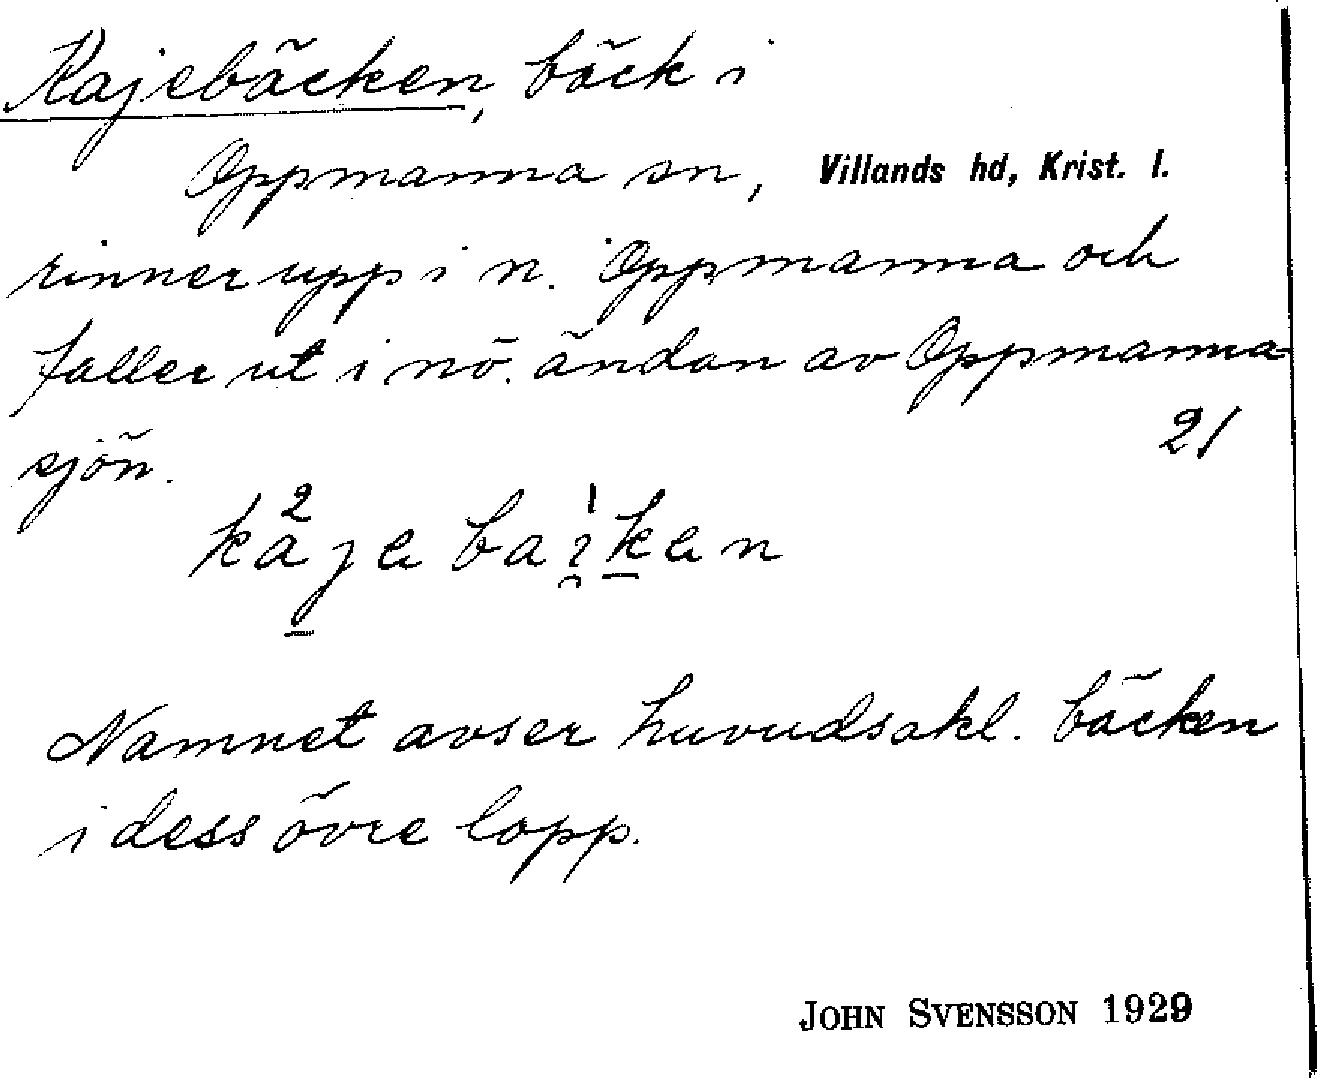 Kajebäcken, bäck i
Oppmanna sn, Villands hd, Krist. l.
rinner upp i n. Oppmanna och
faller ut i nö. ändan av Oppmanna-
sjön.
21
Namnet avser huvudsakl. bäcken
i dess övre lopp.
JOHN SVENSSON 1929